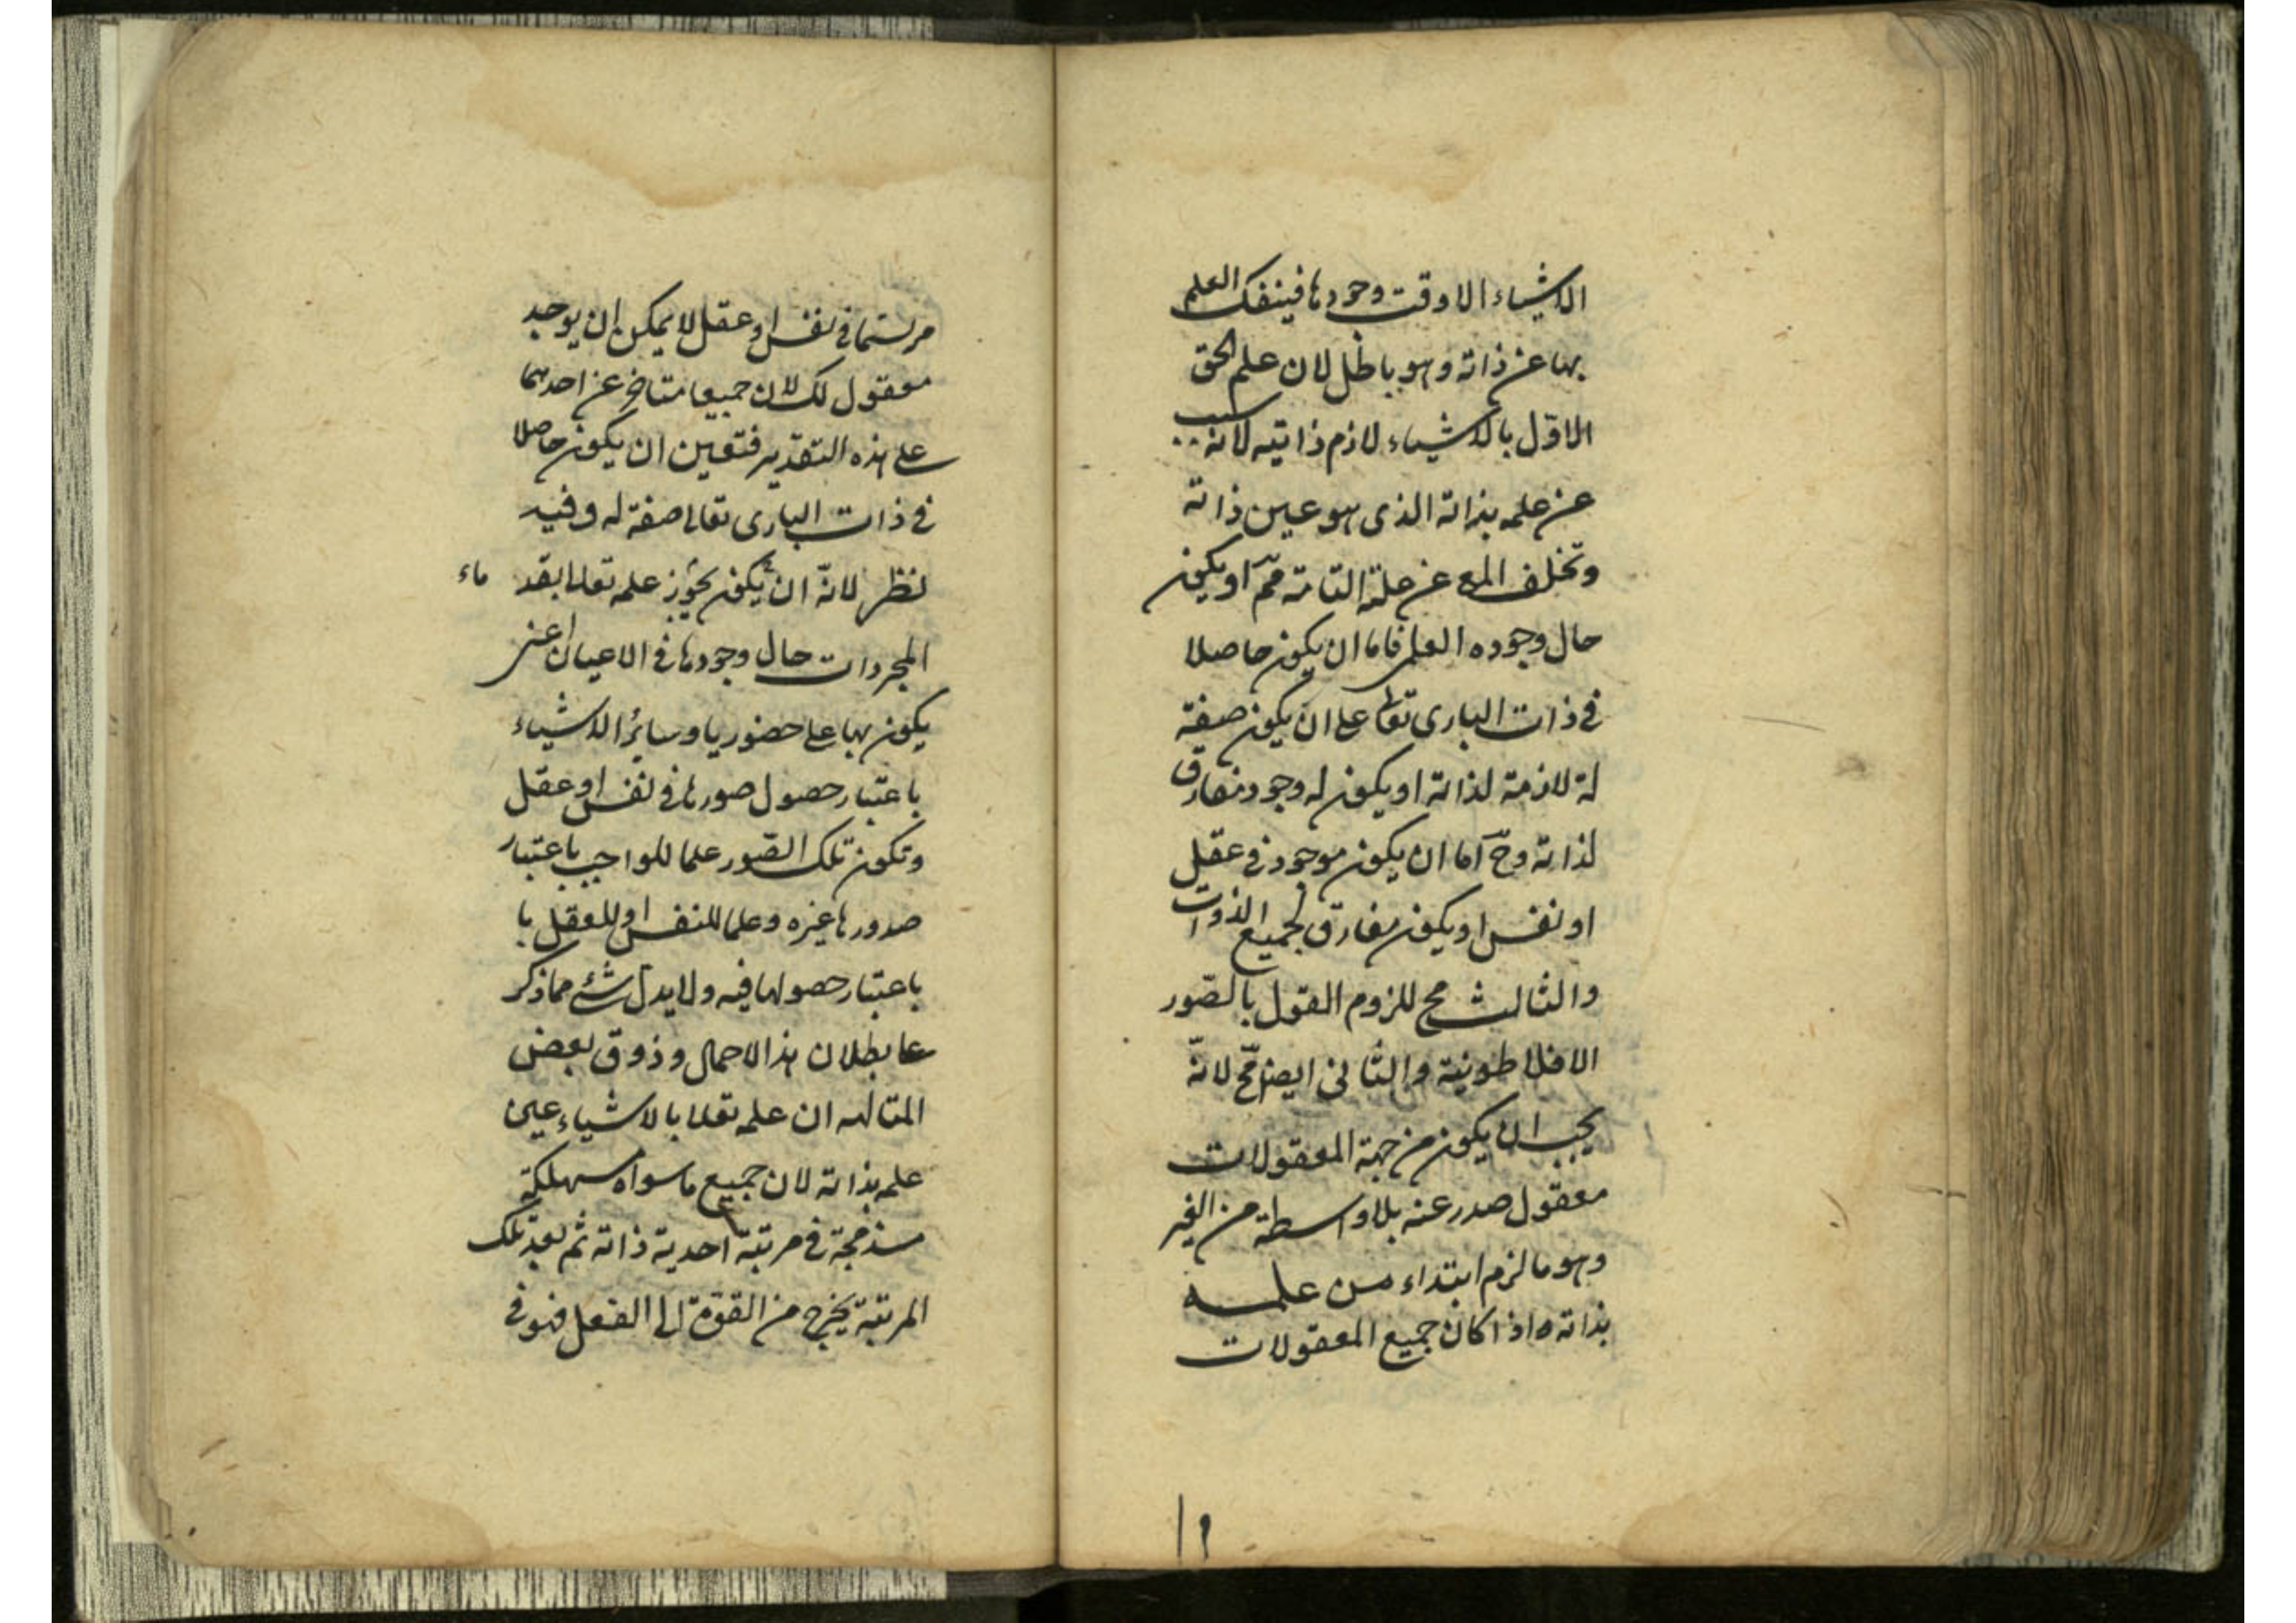 الاشياء الا وقت وجودها فينفك العلم
بها عن ذاته وهو باطل لان علم الحق
الاوّل بالاشياء لازم ذاتيه لانه سبب
عن علمه بذاته الذى هو عين ذاته
وتخلف المع عن علته التامة مح او يكون
حال وجوده العلمى فاما ان يكون حاصلا
فى ذات البارى تعالى على ان يكون صفة
له لازمة لذاته او يكون له وجود مفارق
لذاته وحَ اما ان يكون موجود فى عقل
او نفس او يكون مفارق لجميع الذوات
والثالث مح للزوم القول بالصّور
الافلاطونية والثانى ايضا مح لانّه
يجب ان يكون من جهة المعقولات
معقول صدر عنه بلا واسطة من الغير
وهو ما لزم ابتداء من علمه
بذاته واذا كان جميع المعقولات
١٩
مرتسما فى نفس او عقل لا يمكن ان يوجد
معقول لك لان جميعا متاخر عن احدهما
على هذه التقدير فتعين ان يكون حاصلا
فى ذات البارى تعالى صفة له وفيه
نظر لانّه ان يكون يجوز علمه تعالى بقد ماء
المجردات حال وجودها فى الاعيان اعنى
يكون بها علما حضوريا وسائر الاشياء
باعتبار حصول صورها فى نفس او عقل
وتكون تلك الصّور علما للواجب باعتبار
صدورها عنه وعلما للنفس او للعقل با
باعتبار حصولها فيه ولا يدل شئ مما ذكر
على بطلان هذا الاحمال وذوق بعض
المتالهه ان علمه تعالى بالاشياء عين
علمه بذاته لان جميع ما سواه مستهلكة
مندمجة فى مرتبة احدية ذاته ثم بعد تلك
المرتبة يخرج من القوة الى الفعل فهو فى